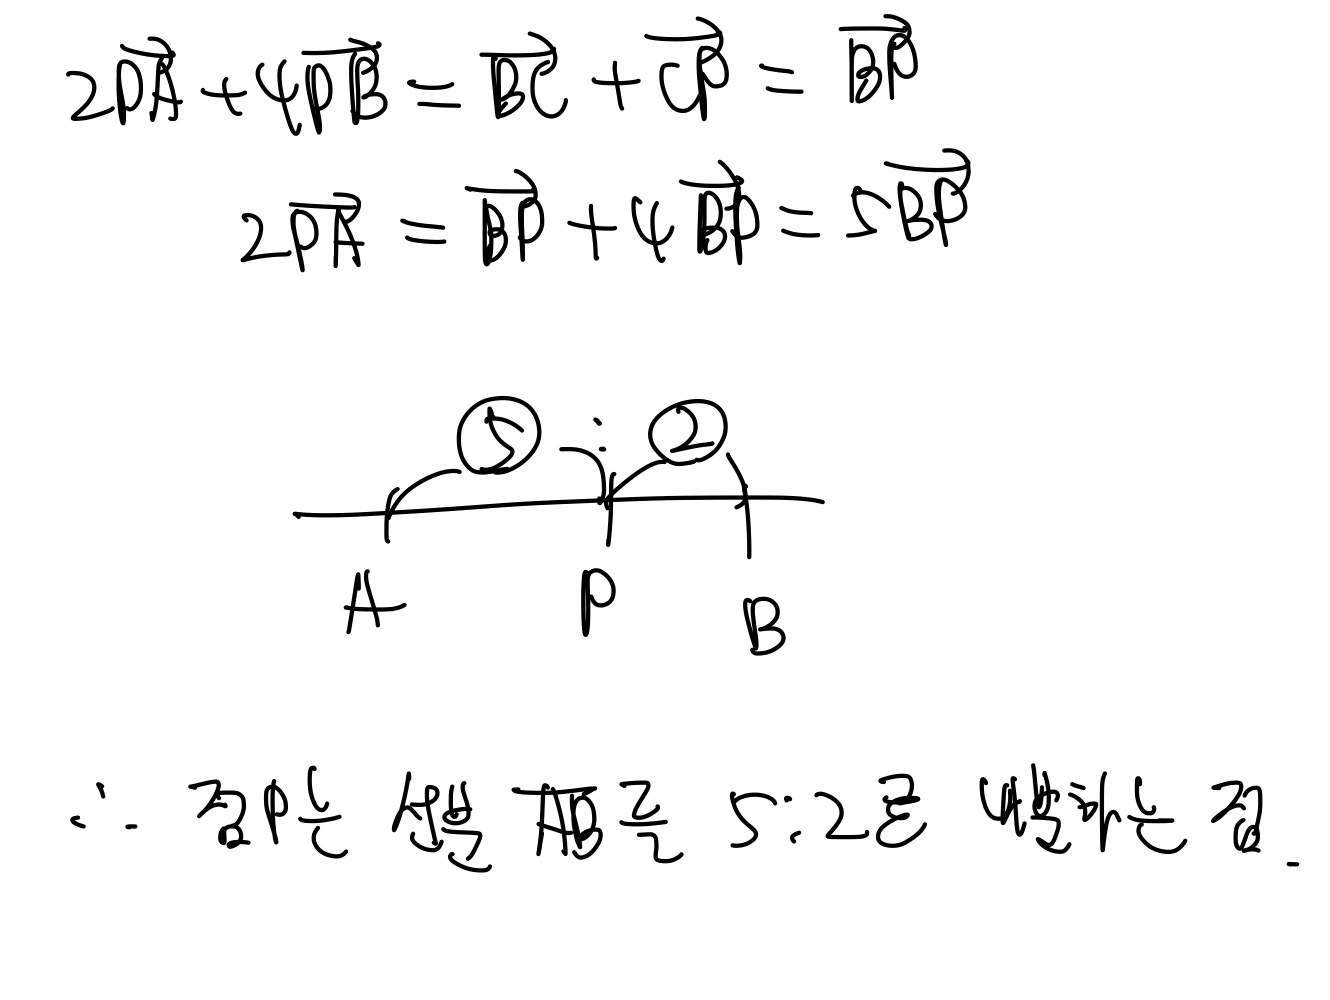 2PA + 4PB = BC + CP = BP
2PA = BP + 4BP = 5BP
5 : 2
A P B
∴ 점P는 선분 AB를 5:2로 내분하는 점.